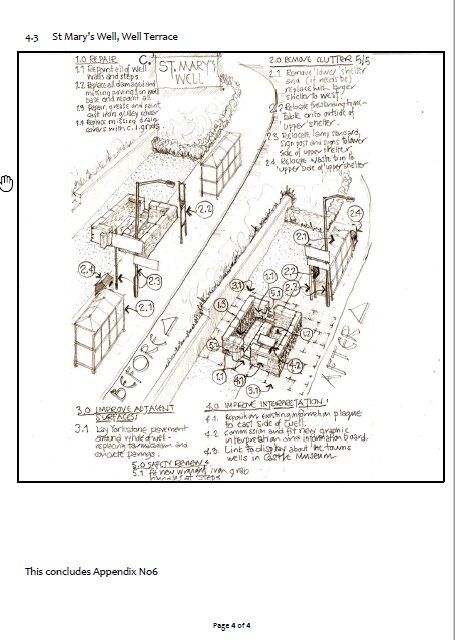 4.3 St Mary's Well, Well Terrace
ST. MARY'S
WELL
1.0 REPAIR
1.1 Repoint all of well
walls and steps
1.2 Replace all damaged and
missing paving in well
base and repoint all
1.3 Repair, grease and paint
cast iron gulley cover
1.4 Replace missing drain
covers with c.i. grids
2.0 REMOVE CLUTTER 5/5
2.1 Remove 'lower' shelter
and (if needs be)
replace with larger
shelter to west.
2.2 Relocate freestanding time-
table onto outside of
'upper' shelter.
2.3 Relocate lamp standard,
sign post and signs to lower
side of upper shelter.
2.4 Relocate waste bin to
'upper side' of 'upper' shelter
2.2
2.4
2.3
2.1
BEFORE
2.4
2.1
2.2
2.2
1.1
3.1
5.1
1.3
1.2
5.1
4.2
1.1
4.1
3.1
AFTER
3.0 IMPROVE ADJACENT
SURFACES:
3.1 Lay Yorkstone pavement
around whole of well -
replacing tarmacadam and
concrete pavings.
4.0 IMPROVE INTERPRETATION:
4.1. Reposition existing information plaque
to east side of well.
4.2 Commission and fit new graphic
interpretation and information board.
4.3. Link to display about the towns
wells in Castle Museum
5.0 SAFETY REVIEW:
5.1 fit new wrought iron grab
handles at steps
This concludes Appendix No6
Page 4 of 4